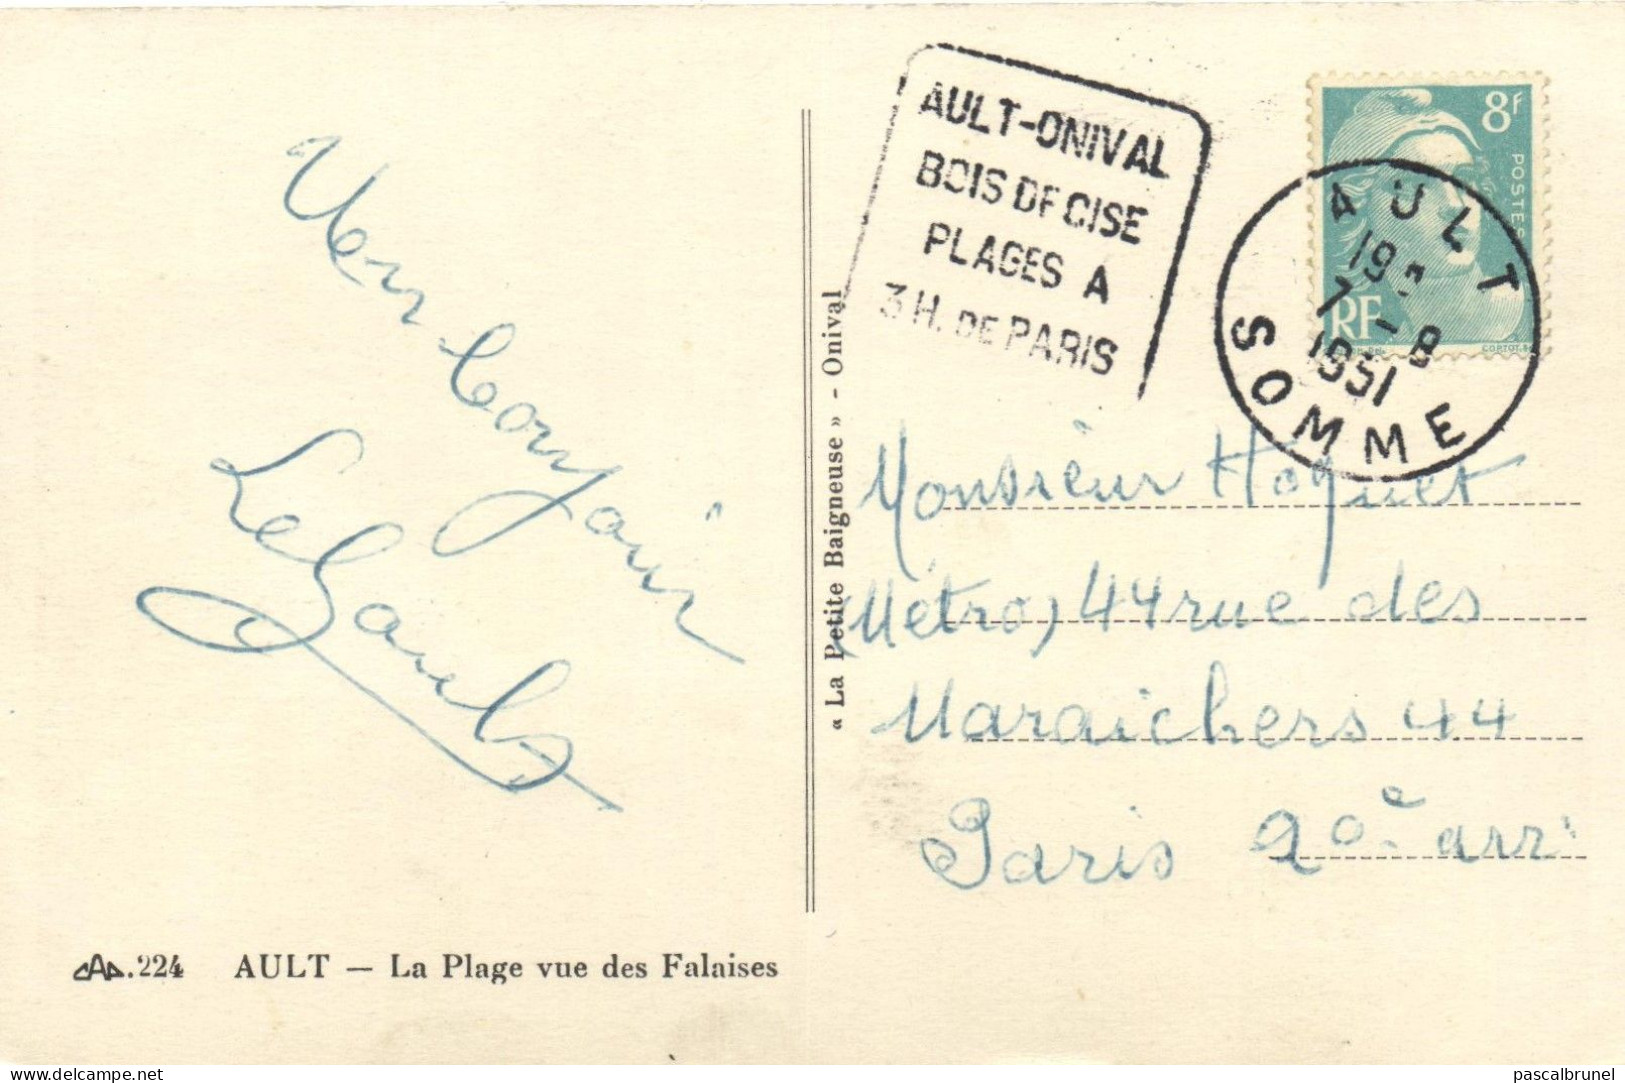 AULT-ONIVAL
BOIS DE CISE
PLAGES A
3 H. DE PARIS
8F
POSTES
RF
AULT
7 - 8
1951
SOMME
« La Petite Baigneuse » - Onival
Monsieur Hoguet
(Métro) 44 rue des
Maraichers 44
Paris 20e arr.
CAP.224 AULT — La Plage vue des Falaises
www.delcampe.net
pascalbrunel